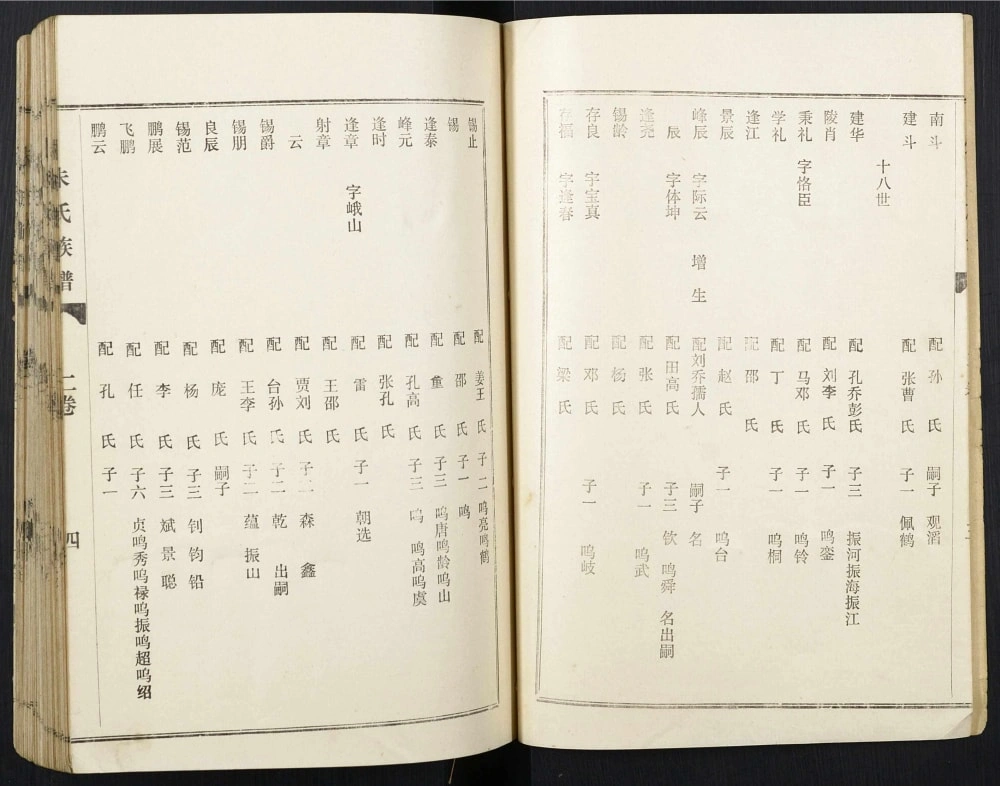 南斗 配 孙 氏 嗣子 观滔
建斗 配 张曹 氏 子一 佩鹤
十八世
建华 配 孔乔彭氏 子三 振河振海振江
陵肖 配 刘李 氏 子一 鸣銮
秉礼 字恪臣 配 马邓 氏 子一 鸣铃
学礼 配 丁 氏 子一 鸣桐
逢江 配 邵 氏
景辰 配 赵 氏 子一 鸣台
峰辰 字际云 增生 配刘乔孺人 嗣子 名
辰 字体坤 配 田高 氏 子三 钦 鸣舜 名出嗣
逢尧 配 张 氏 子一 鸣武
锡龄 配 杨 氏
存良 字宝真 配 邓 氏 子一 鸣岐
存福 字逢春 配 梁 氏
锡止 配 姜王 氏 子二 鸣亮鸣鹤
锡 配 邵 氏 子一 鸣
逢泰 配 董 氏 子三 鸣唐鸣龄鸣山
峰元 配 孔高 氏 子三 鸣 鸣高鸣虞
逢时 配 张孔 氏
逢章 字峨山 配 雷 氏 子一 朝选
射章 配 王邵 氏
云 配 贾刘 氏 子二 森 鑫
锡爵 配 台孙 氏 子二 乾 出嗣
锡朋 配 王李 氏 子二 蕴 振山
良辰 配 庞 氏 嗣子
锡范 配 杨 氏 子三 钊 钧 铅
鹏展 配 李 氏 子三 斌 景 聪
飞鹏 配 任 氏 子六 贞鸣秀鸣禄鸣振鸣超鸣绍
鹏云 配 孔 氏 子一
朱氏族谱 二卷 四